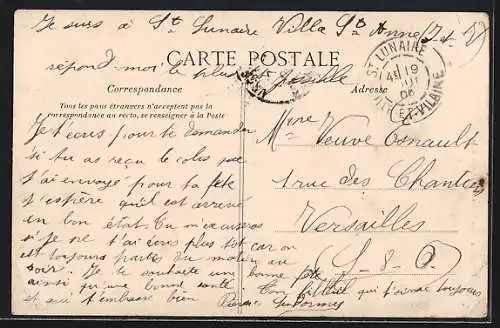 Je suis à St Lunaire Villa Ste Anne I-et-V
CARTE POSTALE
répond moi le plus possible
Correspondance
Adresse
Tous les pays étrangers n'acceptent pas la
correspondance au recto, se renseigner à la Poste
ST LUNAIRE
ILLE-ET-VILAINE
19
Je t'écris pour te demander
si tu as reçu le colis que
j'ai envoyé pour ta fête
j'espère qu'il est arrivé
en bon état. Tu m'excuseras
si je ne t'ai écris plus tôt car on
est toujours partis du matin au
soir. Je te souhaite une bonne fête
ainsi qu'une bonne santé
et qui t'embrasse bien
Ton qui t'aime toujours
Mme
Veuve Osnault
1 rue des Chantiers
Versailles
S-&-O